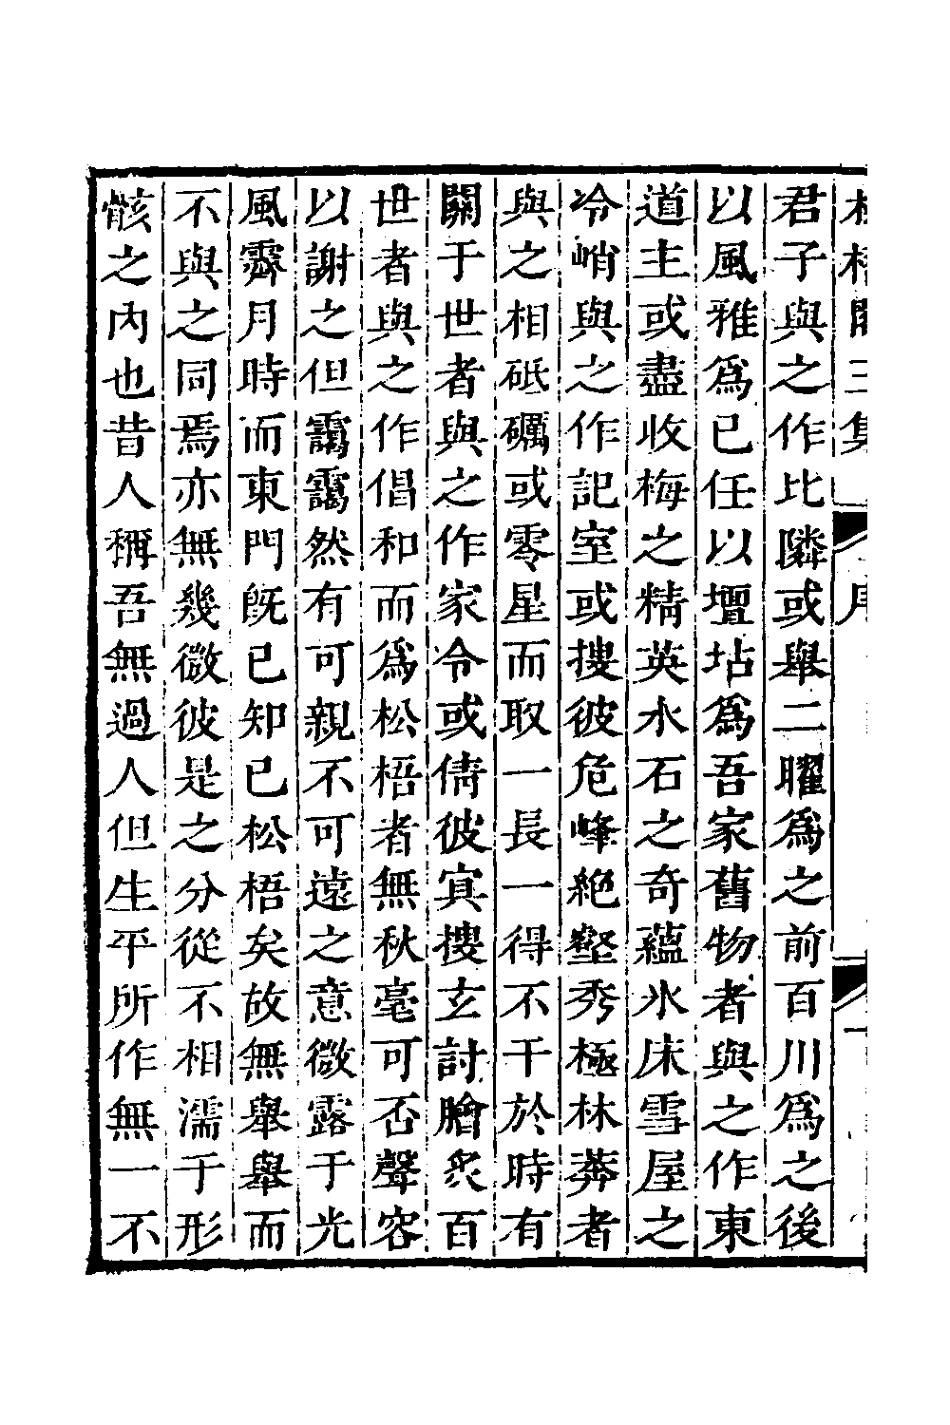 君子與之作比隣或舉二曜爲之前百川爲之後
以風雅爲已任以壇坫爲吾家舊物者與之作東
道主或盡收梅之精英水石之奇蘊氷床雪屋之
冷峭與之作記室或搜彼危峰絶壑秀極林莽者
與之相砥礪或零星而取一長一得不干於時有
關于世者與之作家令或倩彼寘搜玄討膾炙百
世者與之作倡和而爲松梧者無秋毫可否聲容
以謝之但靄靄然有可親不可遠之意微露于光
風霽月時而東門旣已知已松梧矣故無舉舉而
不與之同焉亦無幾微彼是之分從不相濡于形
骸之內也昔人稱吾無過人但生平所作無一不